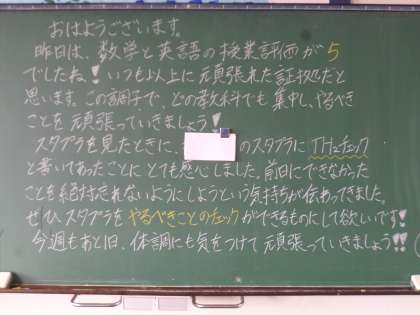 おはようございます。
昨日は、数学と英語の授業評価が5
でしたね!いつも以上に頑張れた証拠だと
思います。この調子で、どの教科でも集中し、やるべき
ことを頑張っていきましょう!
スタプラを見たときに、 のスタプラにTHzチェック
と書いてあったことにとても感心しました。前日にできなかった
ことを絶対忘れないようにしようという気持ちが伝わってきました。
ぜひ、スタプラをやるべきことのチェックができるものにして欲しいです!
今週もあと1日、体調にも気をつけて頑張っていきましょう!!